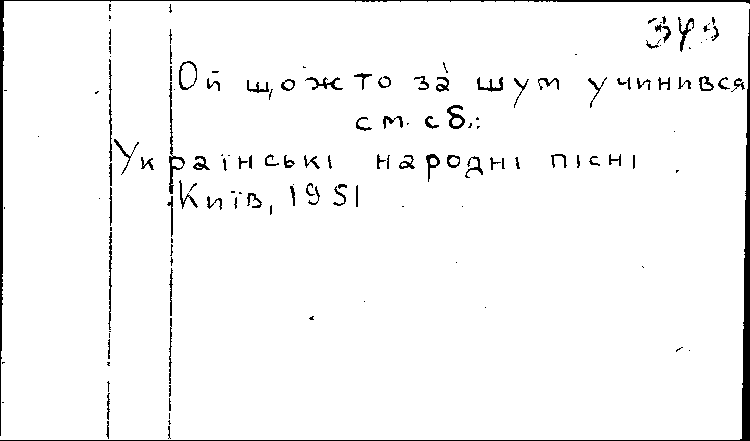 343
Ой щожто за шум учинився
см. сб.:
Українські народні пісні
Київ, 1951